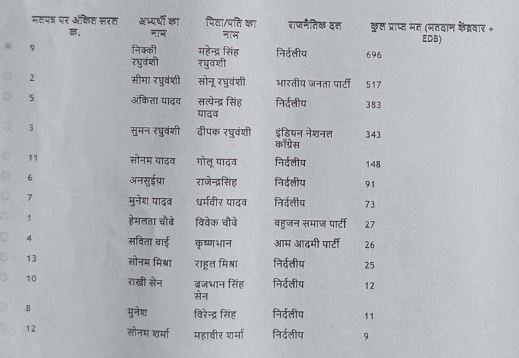 मतपत्र पर अंकित सरल क्र. अभ्यर्थी का नाम पिता/पति का नाम राजनैतिक दल कुल प्राप्त मत (मतदान केंद्रवार + EDB)
9 निक्की रघुवंशी महेन्द्र सिंह रघुवंशी निर्दलीय 696
2 सीमा रघुवंशी सोनू रघुवंशी भारतीय जनता पार्टी 517
5 अंकिता यादव सत्येन्द्र सिंह यादव निर्दलीय 383
3 सुमन रघुवंशी दीपक रघुवंशी इंडियन नेशनल काँग्रेस 343
11 सोनम यादव गोलू यादव निर्दलीय 148
6 अनसुईया राजेन्द्रसिंह निर्दलीय 91
7 मुनेश यादव धर्मवीर यादव निर्दलीय 73
1 हेमलता चौबे विवेक चौवे बहुजन समाज पार्टी 27
4 सविता बाई कृष्णभान आम आदमी पार्टी 26
13 सोनम मिश्रा राहुल मिश्रा निर्दलीय 25
10 राखी सेन ब्रजभान सिंह सेन निर्दलीय 12
8 मुनेश विरेन्द्र सिंह निर्दलीय 11
12 सोनम शर्मा महावीर शर्मा निर्दलीय 9